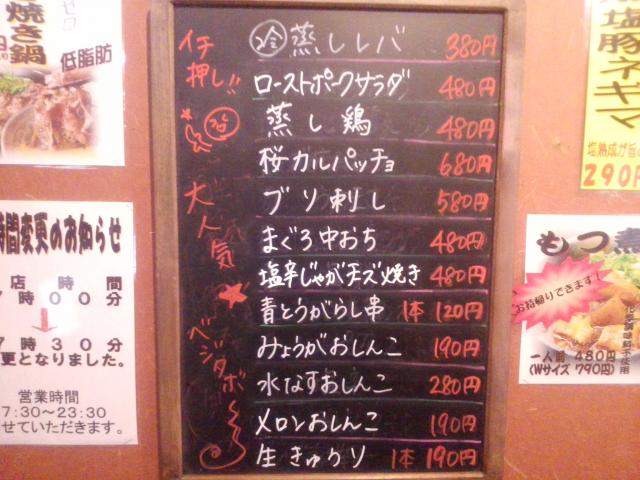 焼き鍋
低脂肪
時間変更のお知らせ
店時間
7時00分
↓
7時30分
更となりました。
営業時間
17:30~23:30
させていただきます。
イチ押し!!
大人気
ベジタボ
冷 蒸しレバ 380円
ローストポークサラダ 480円
冷 蒸し鶏 480円
桜カルパッチョ 680円
ブリ刺し 580円
まぐろ中おち 480円
塩辛じゃがチーズ焼き 480円
青とうがらし串 1本 120円
みょうがおしんこ 190円
水なすおしんこ 280円
メロンおしんこ 190円
生きゅうり 1本 190円
塩豚ネギマ
塩熟成が旨
290円
もつ煮
お持帰りできます!
化学調味料不使用
一人前 480円
(Wサイズ 790円)